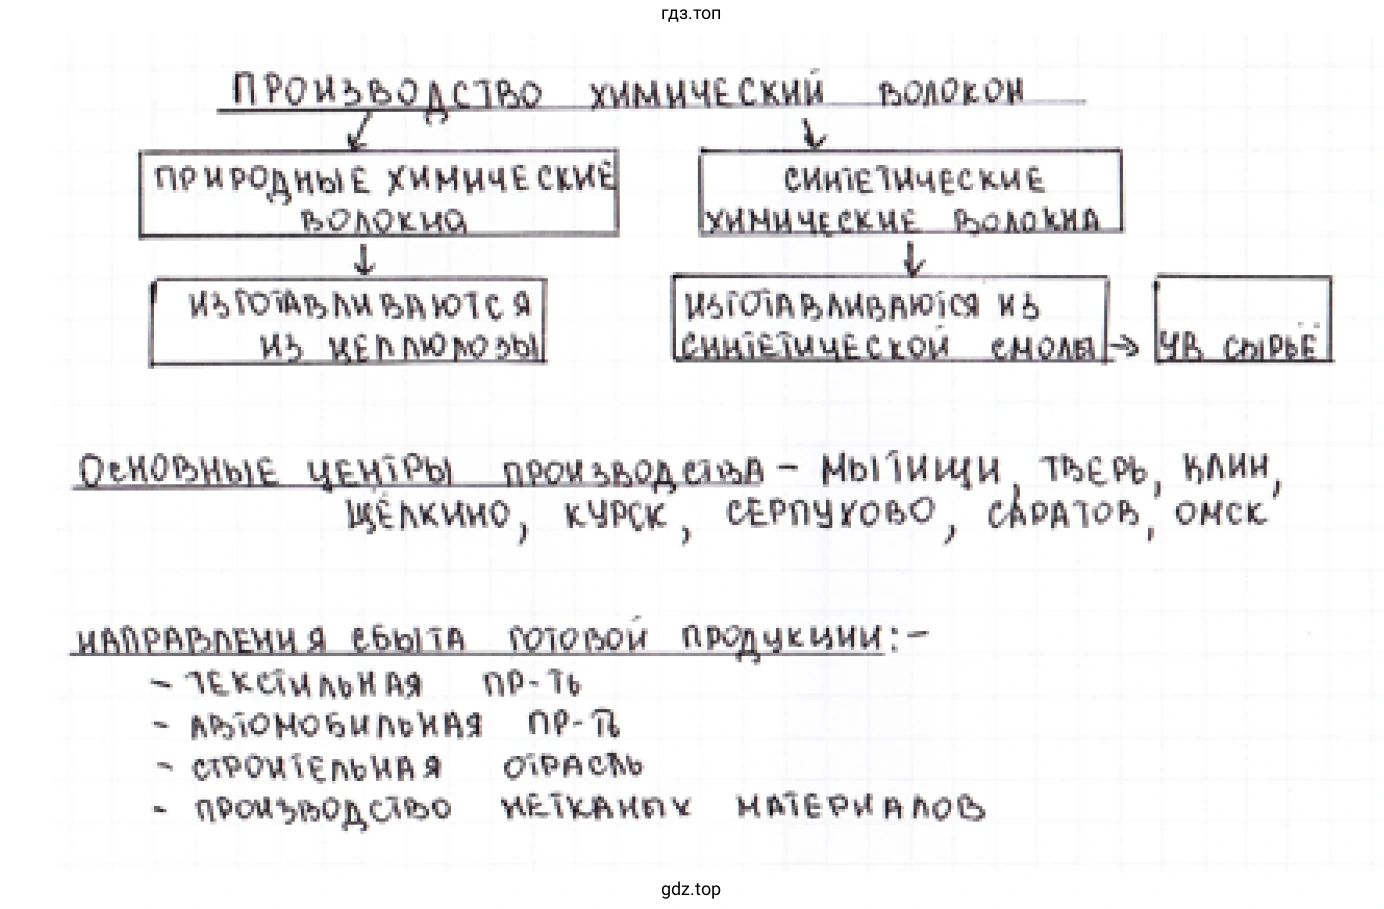 гдз.топ
ПРОИЗВОДСТВО ХИМИЧЕСКИЙ ВОЛОКОН
ПРИРОДНЫЕ ХИМИЧЕСКИЕ
ВОЛОКНА
СИНТЕТИЧЕСКИЕ
ХИМИЧЕСКИЕ ВОЛОКНА
ИЗГОТАВЛИВАЮТСЯ
ИЗ ЦЕЛЛЮЛОЗЫ
ИЗГОТАВЛИВАЮТСЯ ИЗ
СИНТЕТИЧЕСКОЙ СМОЛЫ → УВ СЫРЬЁ
ОСНОВНЫЕ ЦЕНТРЫ ПРОИЗВОДСТВА - МЫТИЩИ, ТВЕРЬ, КЛИН,
ЩЁЛКИНО, КУРСК, СЕРПУХОВО, САРАТОВ, ОМСК
НАПРАВЛЕНИЯ СБЫТА ГОТОВОЙ ПРОДУКЦИИ: -
- ТЕКСТИЛЬНАЯ ПР-ТЬ
- АВТОМОБИЛЬНАЯ ПР-ТЬ
- СТРОИТЕЛЬНАЯ ОТРАСЛЬ
- ПРОИЗВОДСТВО НЕТКАНЫХ МАТЕРИАЛОВ
gdz.top